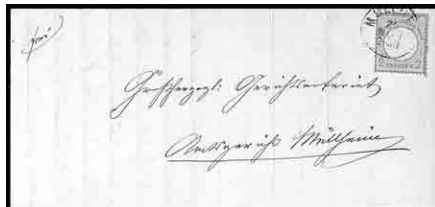 frei
Großherzogl: Gerichtsnotariat
Amtsgericht Müllheim